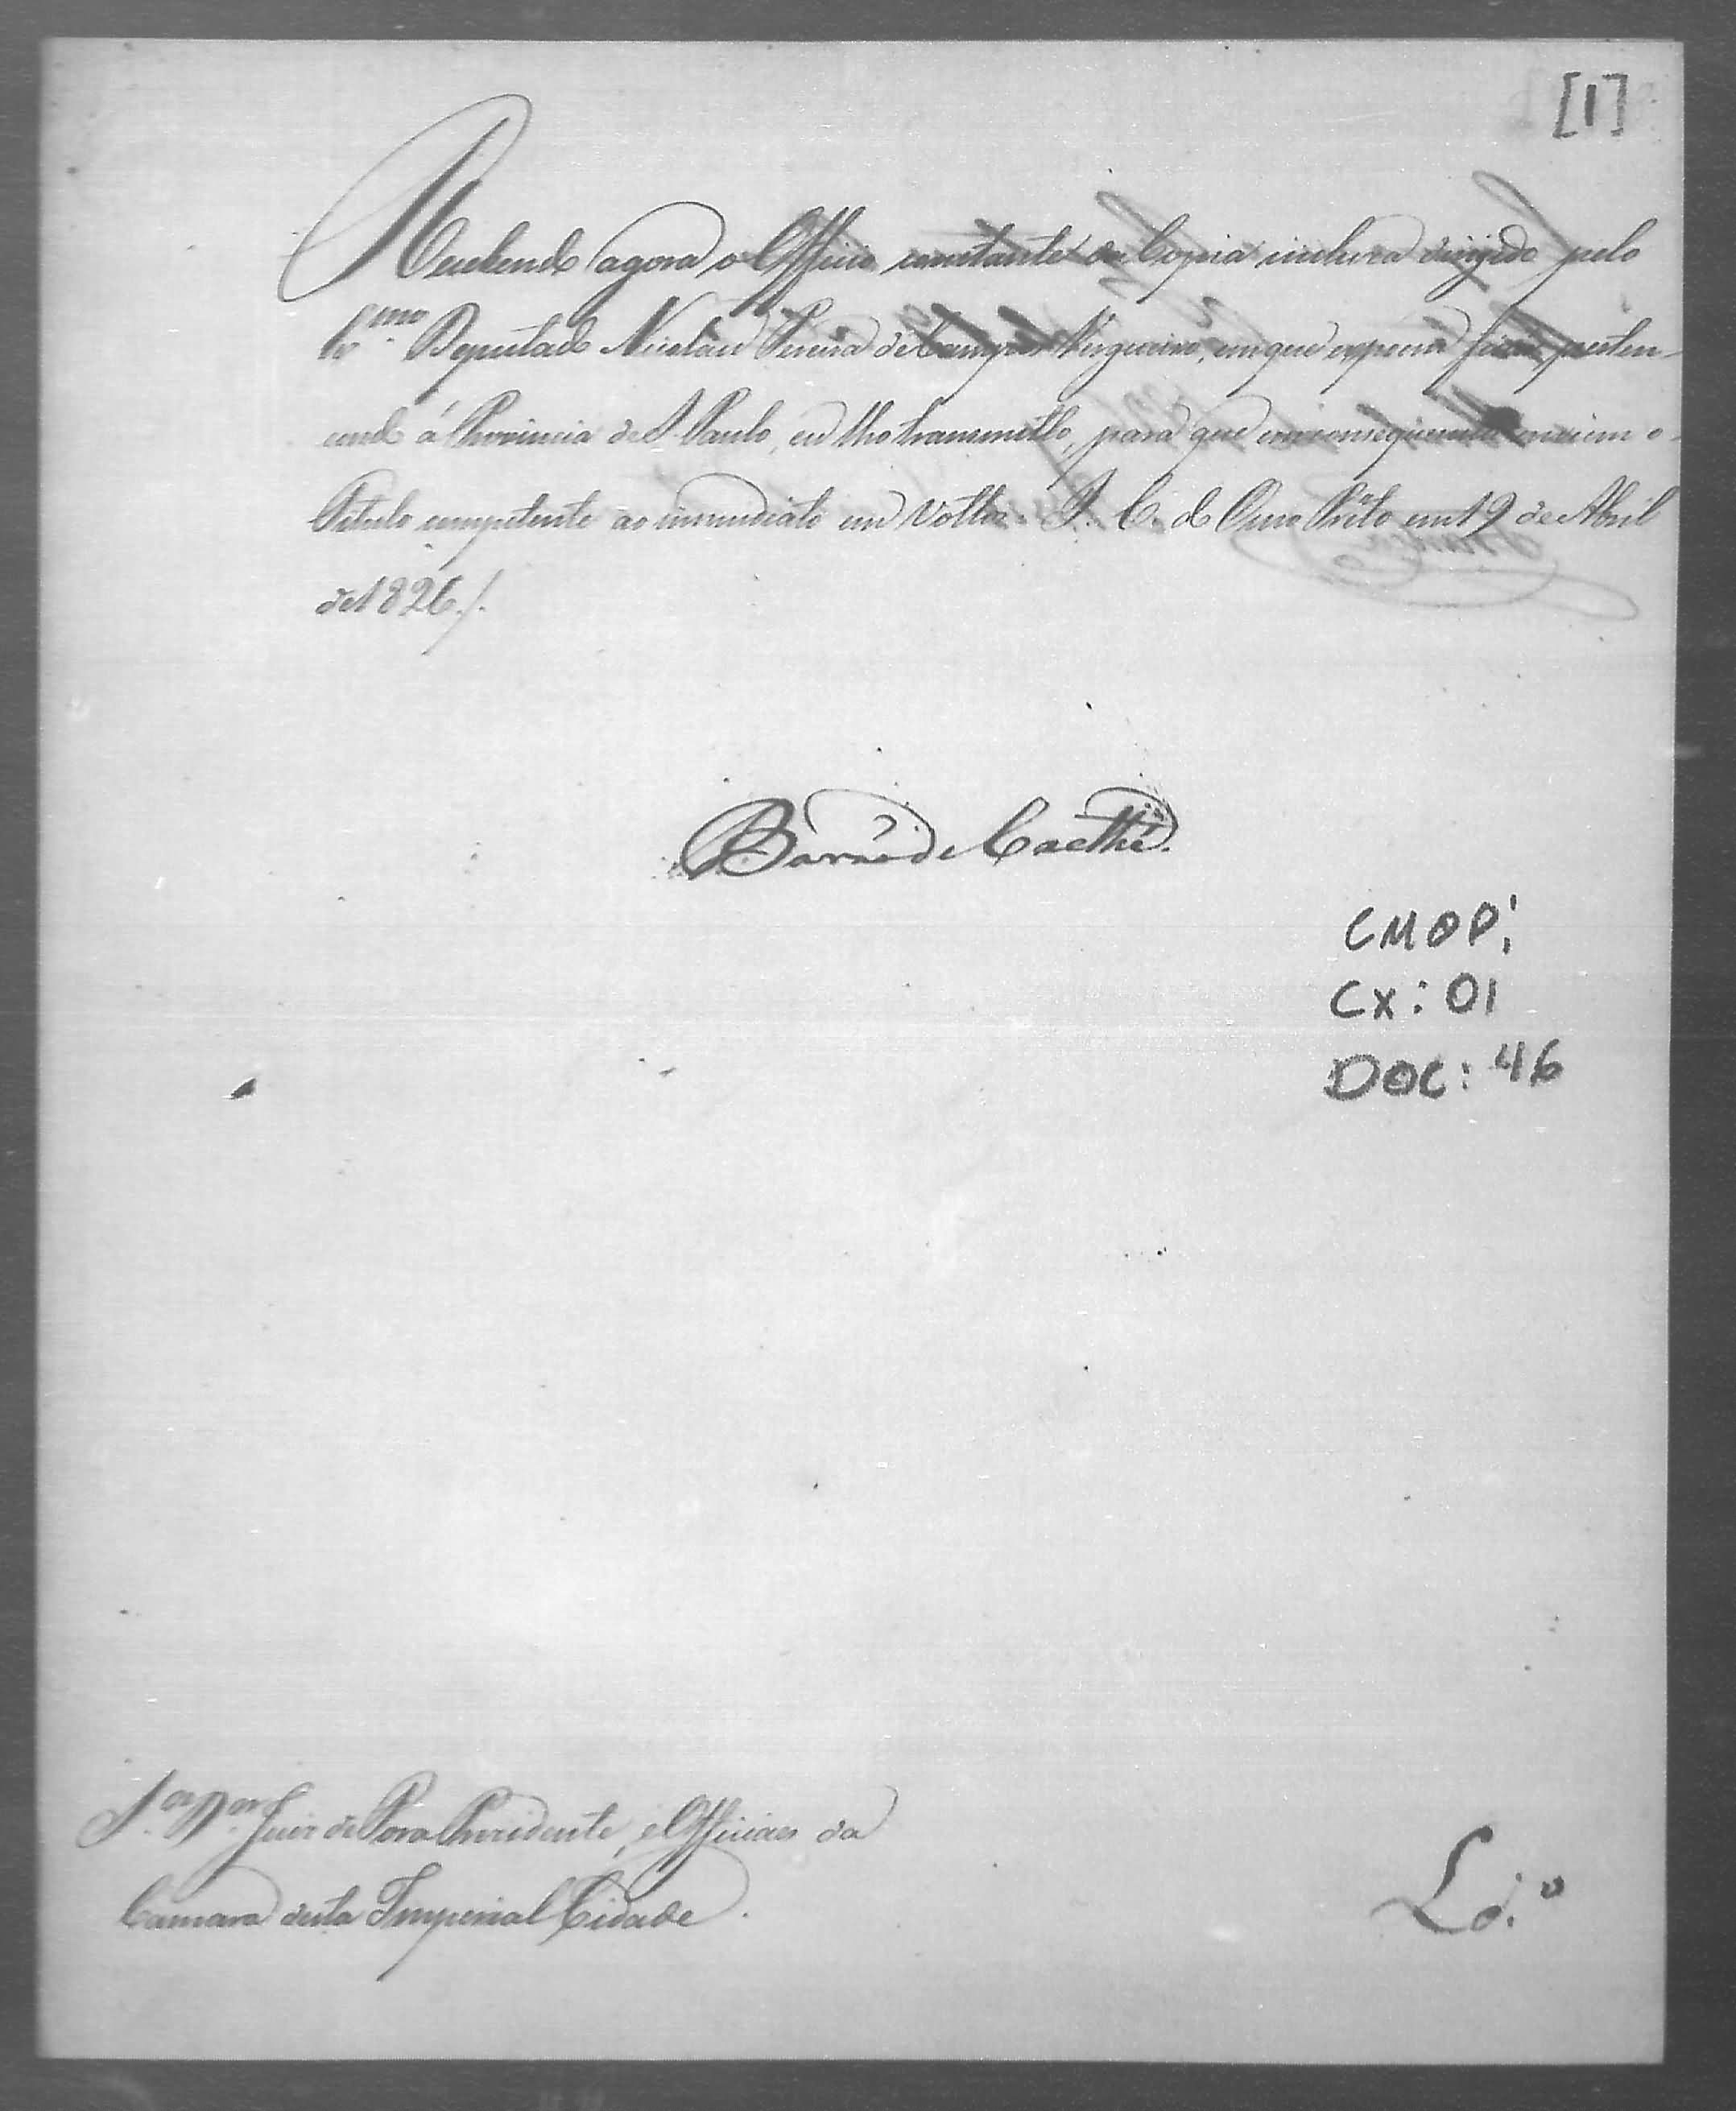 [1]
Recebendo agora o Officio constante da Copia incluza dirigido pelo
Ex.mo Deputado Nicolau Pereira de Campos Vergueiro, em que expoem ficar perten-
cendo á Provincia de S. Paulo, eu lho transmitto, para que em consequencia enviem o
Titulo competente ao immediato em Vottos. I. C. do Ouro Preto em 19 de Abril
de 1826./.
Barão de Caethé.
CMOP:
CX: 01
DOC: 46
S.res D.or Juiz de Fora Prezidente, e Officiaes da
Camara desta Imperial Cidade.